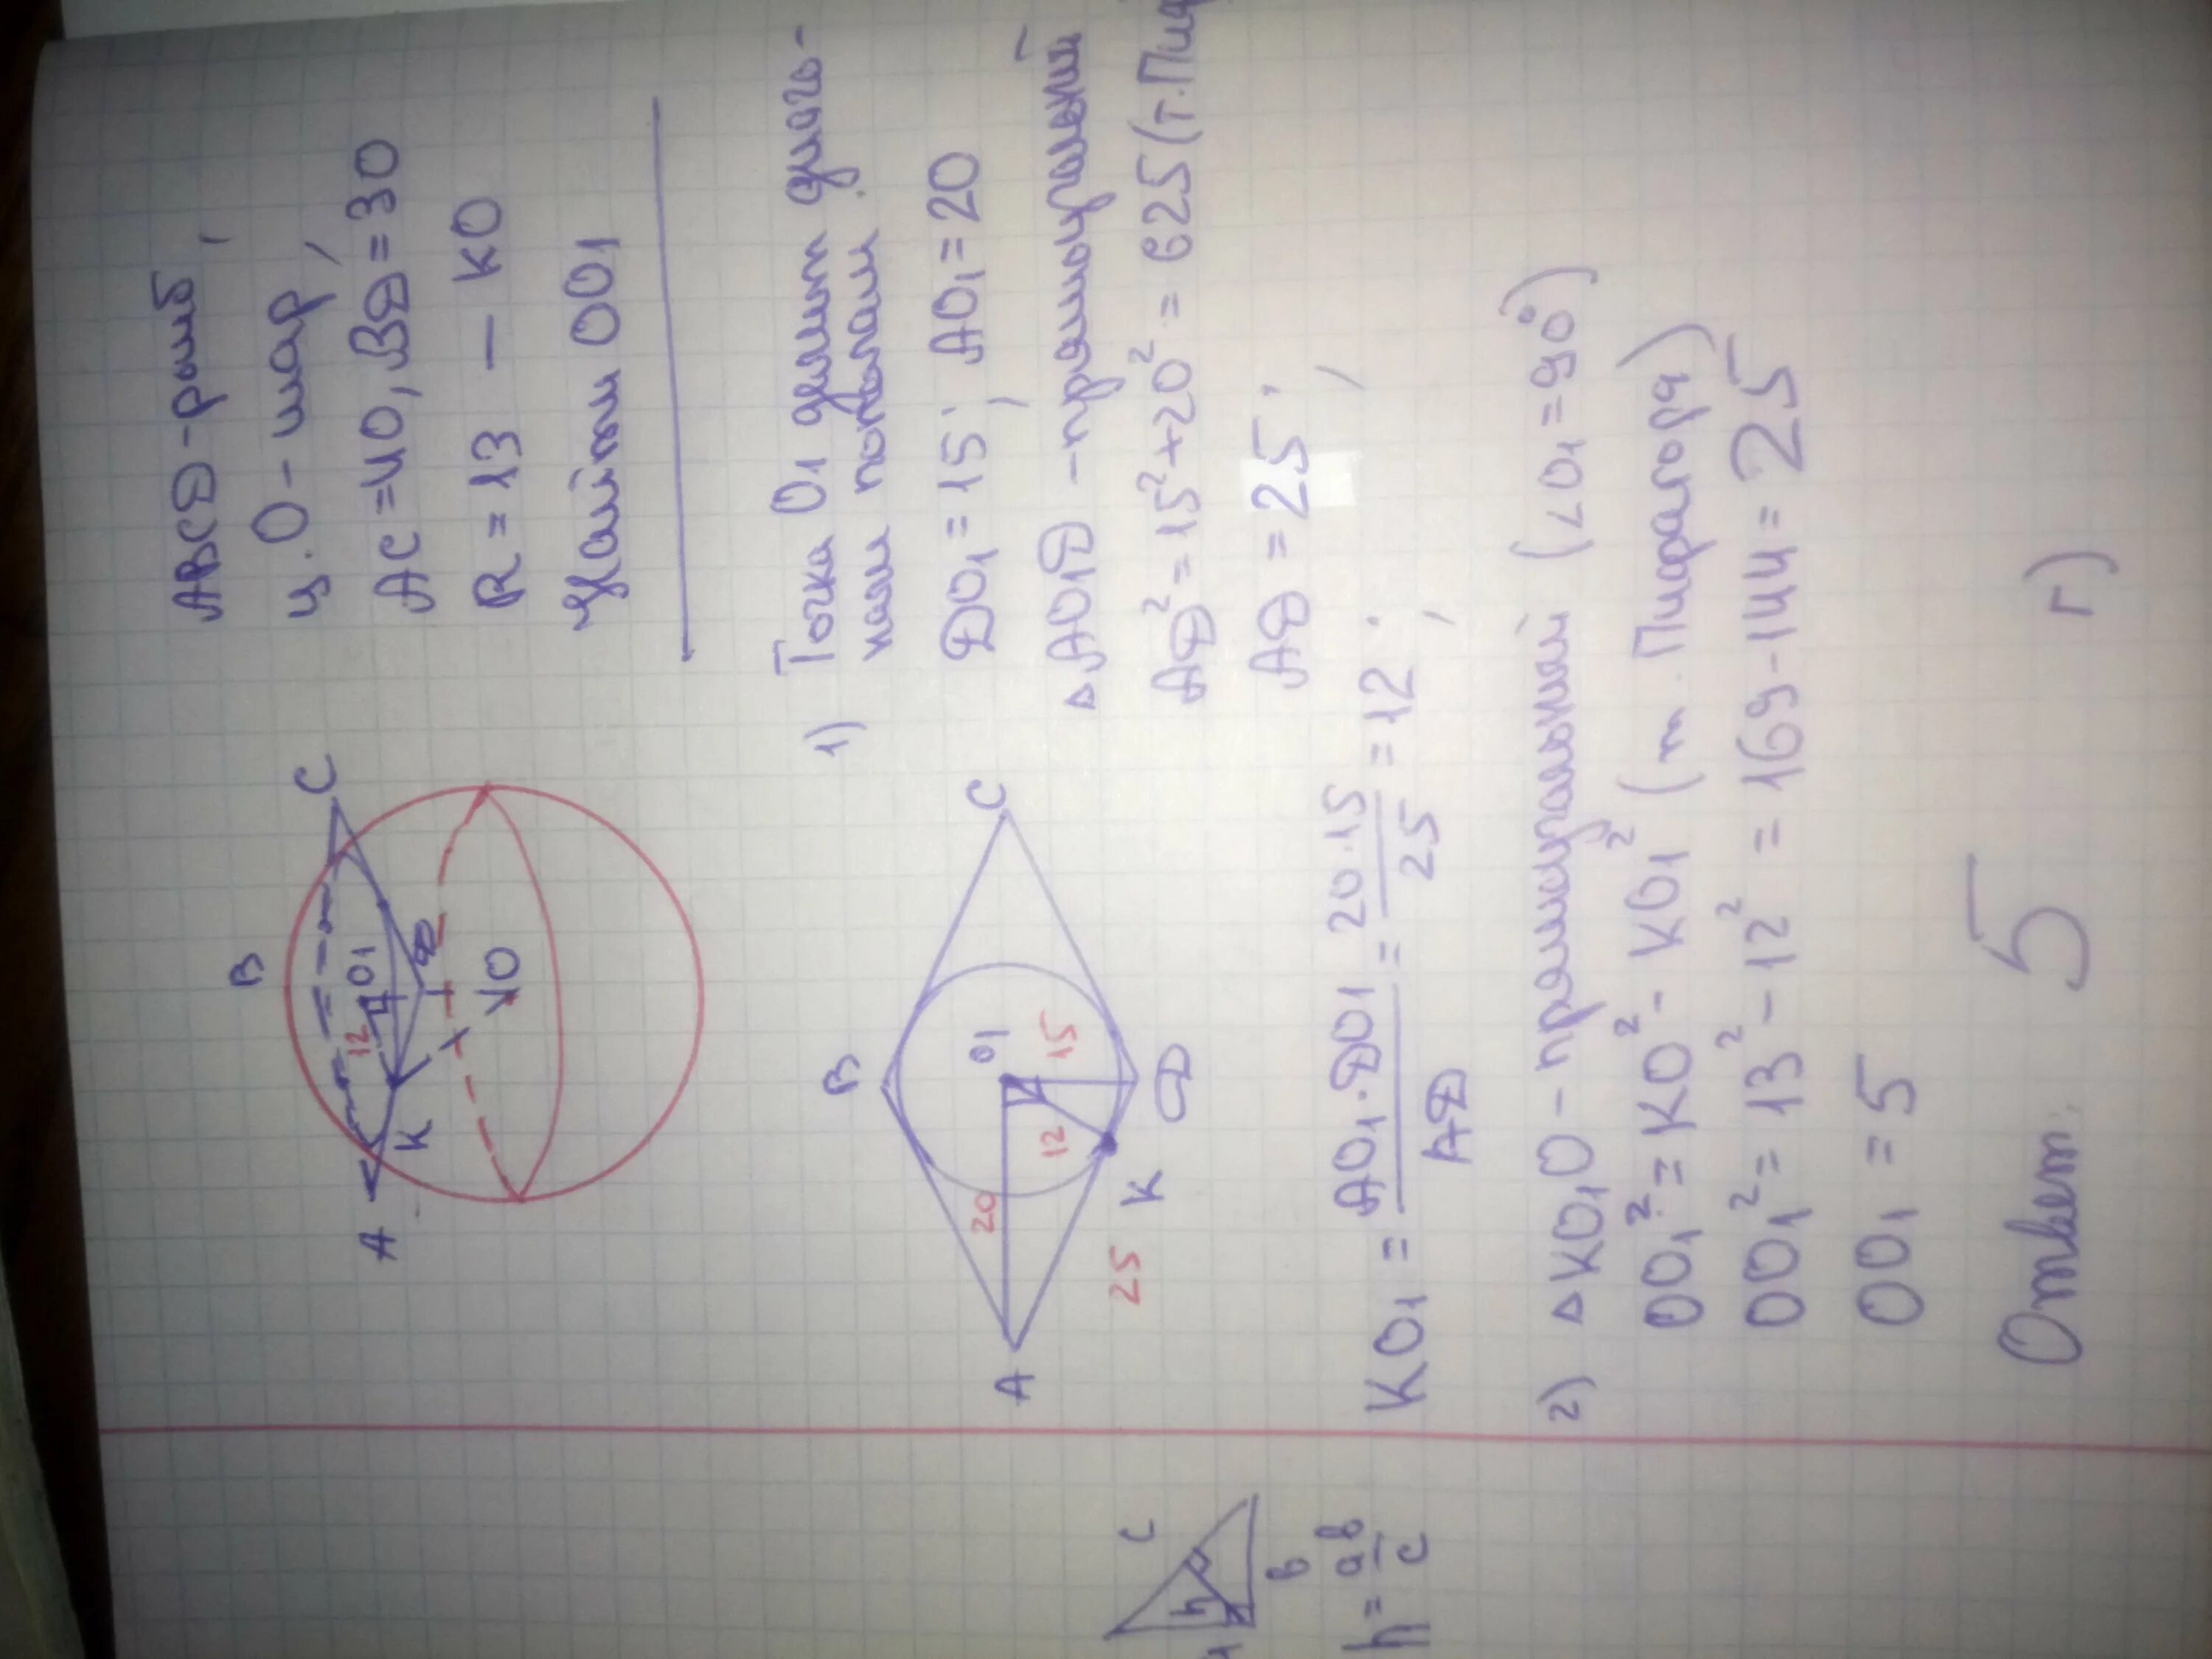 ABCD - ромб,
ц. O - шар,
AC = 40, BD = 30
R = 13 — KO
Найти OO₁
B
C
12
O₁
D
A
K
O
1) Точка O₁ делит диаго-
нали пополам.
DO₁ = 15; AO₁ = 20
△AO₁D - прямоугольный
AD² = 15² + 20² = 625 (т. Пиф
AD = 25;
B
C
O₁
15
20
12
A
D
K
25
KO₁ = AO₁·DO₁ / AD = 20·15 / 25 = 12;
c
h
в
h = aв / c
2) △KO₁O - прямоугольный (∠O₁ = 90°)
OO₁² = KO² - KO₁² (т. Пифагора)
OO₁² = 13² - 12² = 169 - 144 = 25
OO₁ = 5
Ответ: 5 г)